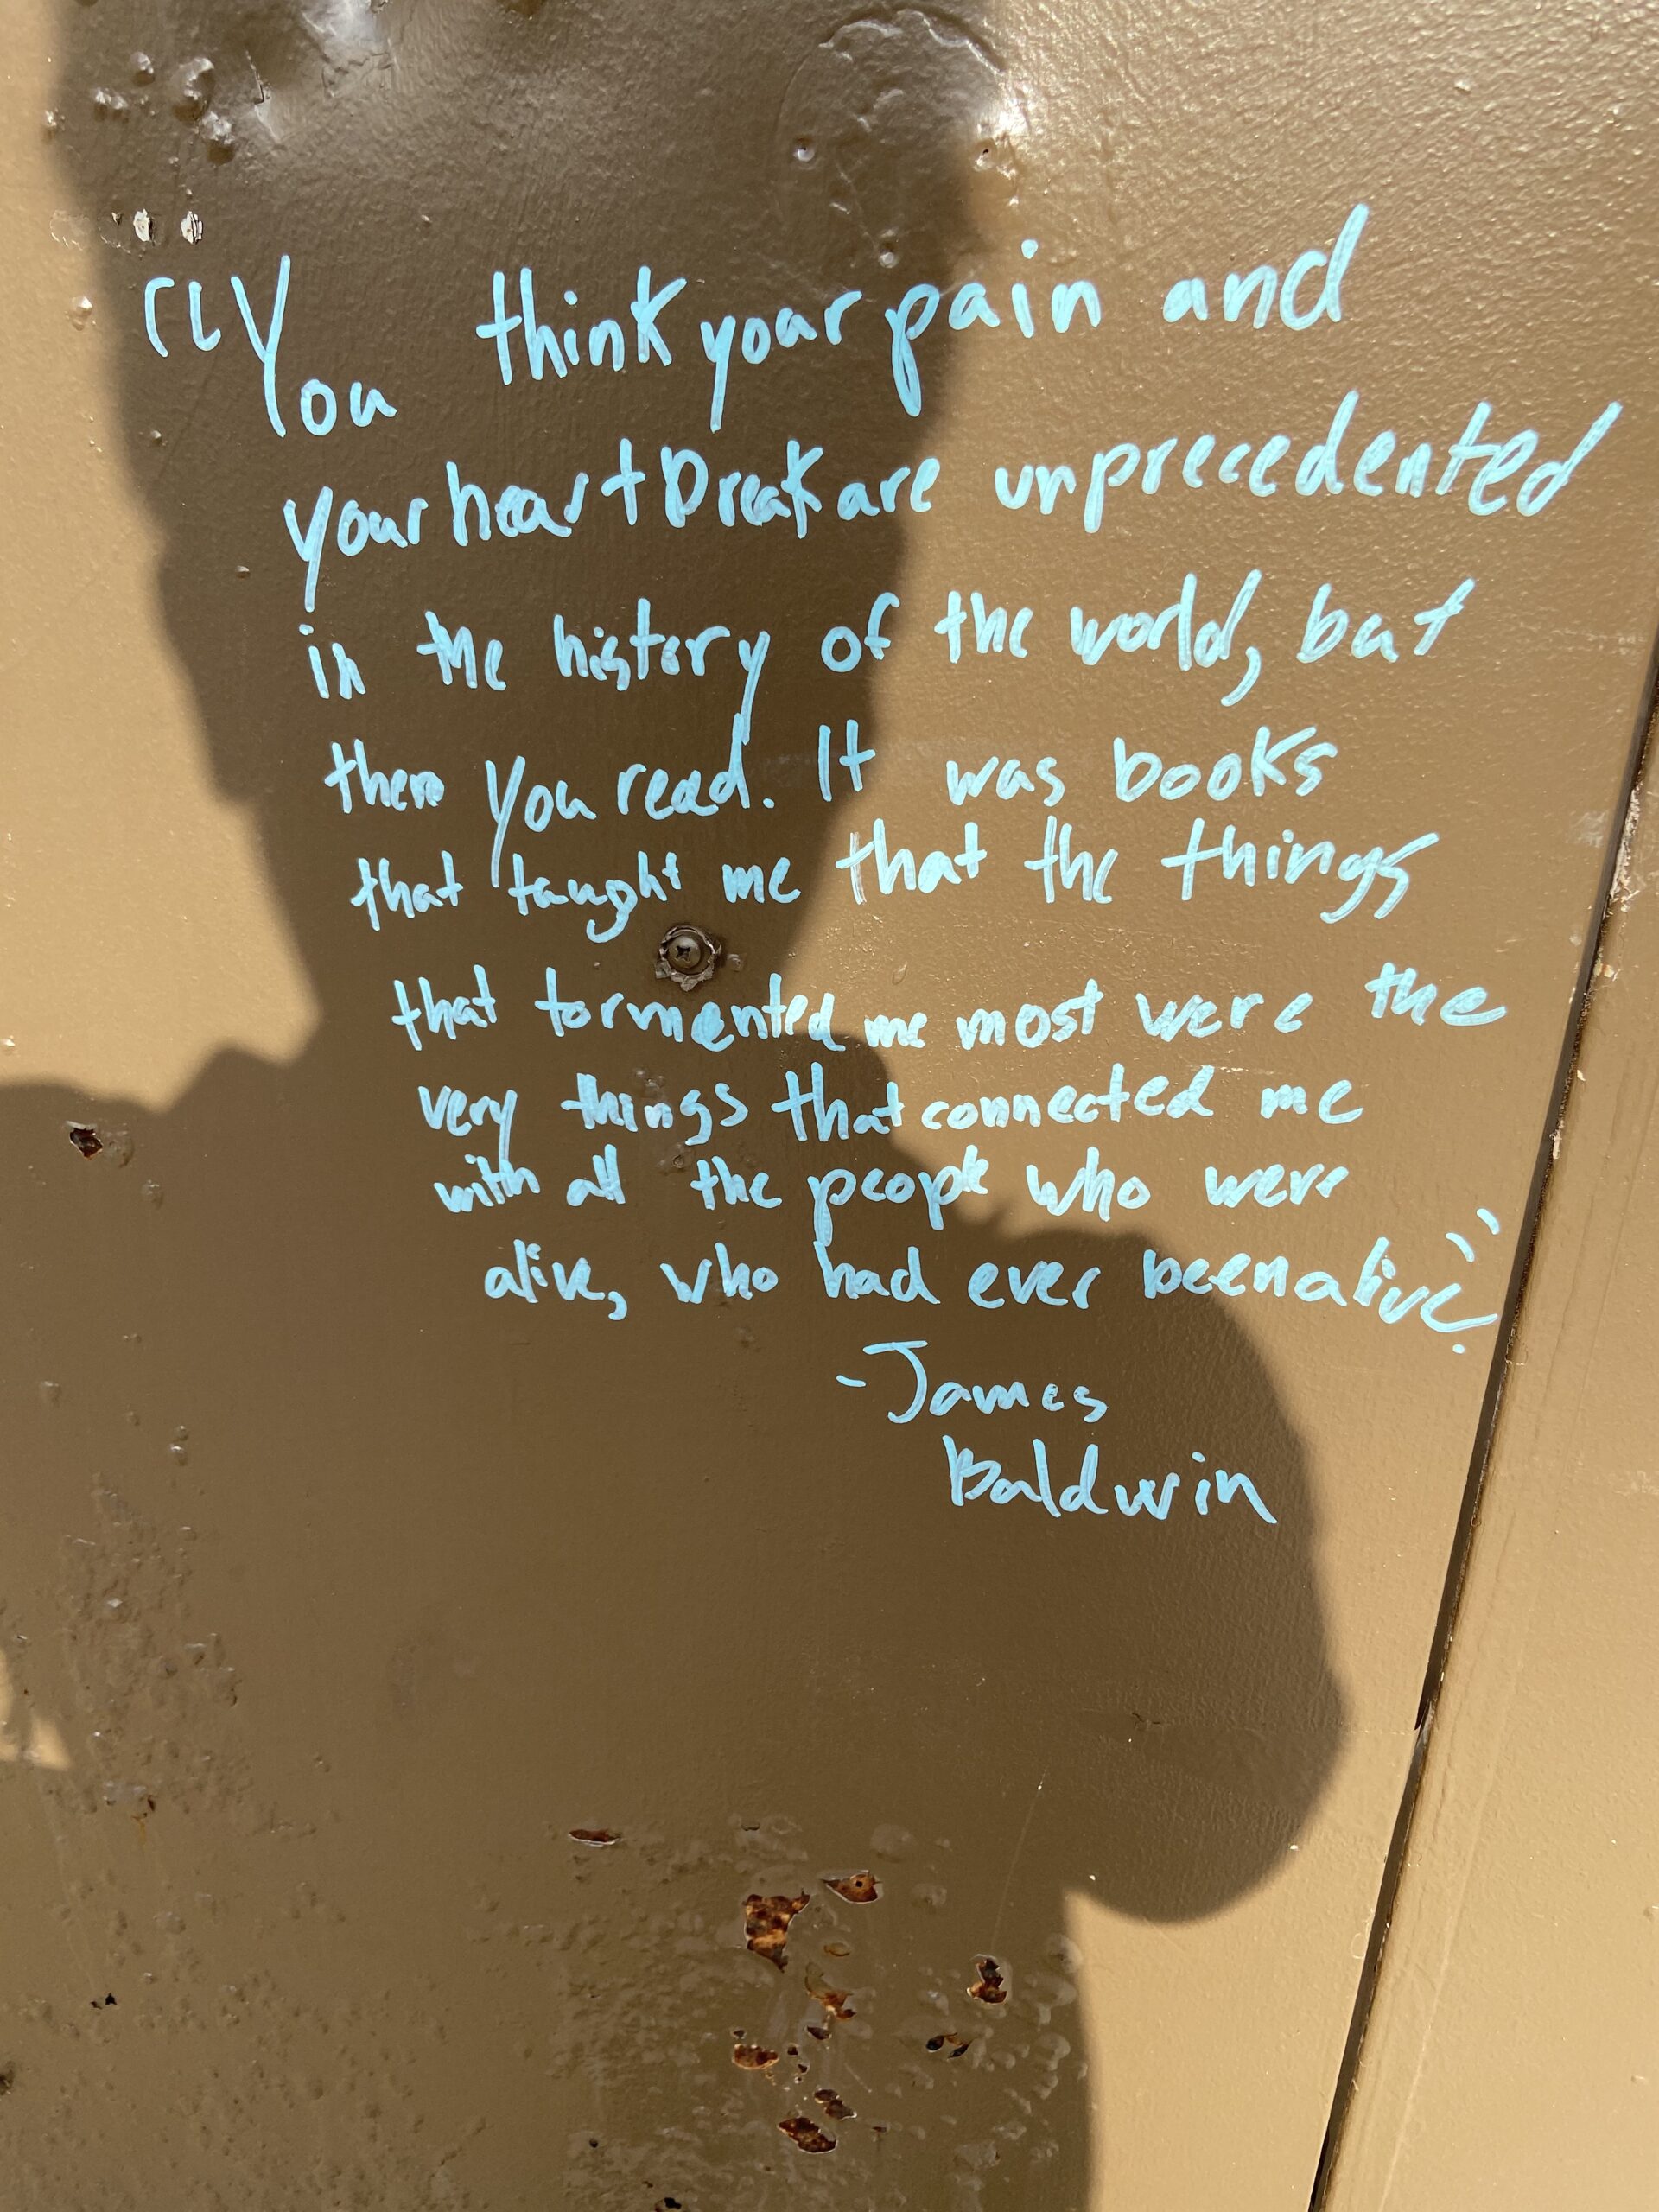 "You think your pain and
your heartbreak are unprecedented
in the history of the world, but
then you read. It was books
that taught me that the things
that tormented me most were the
very things that connected me
with all the people who were
alive, who had ever been alive."
-James
Baldwin